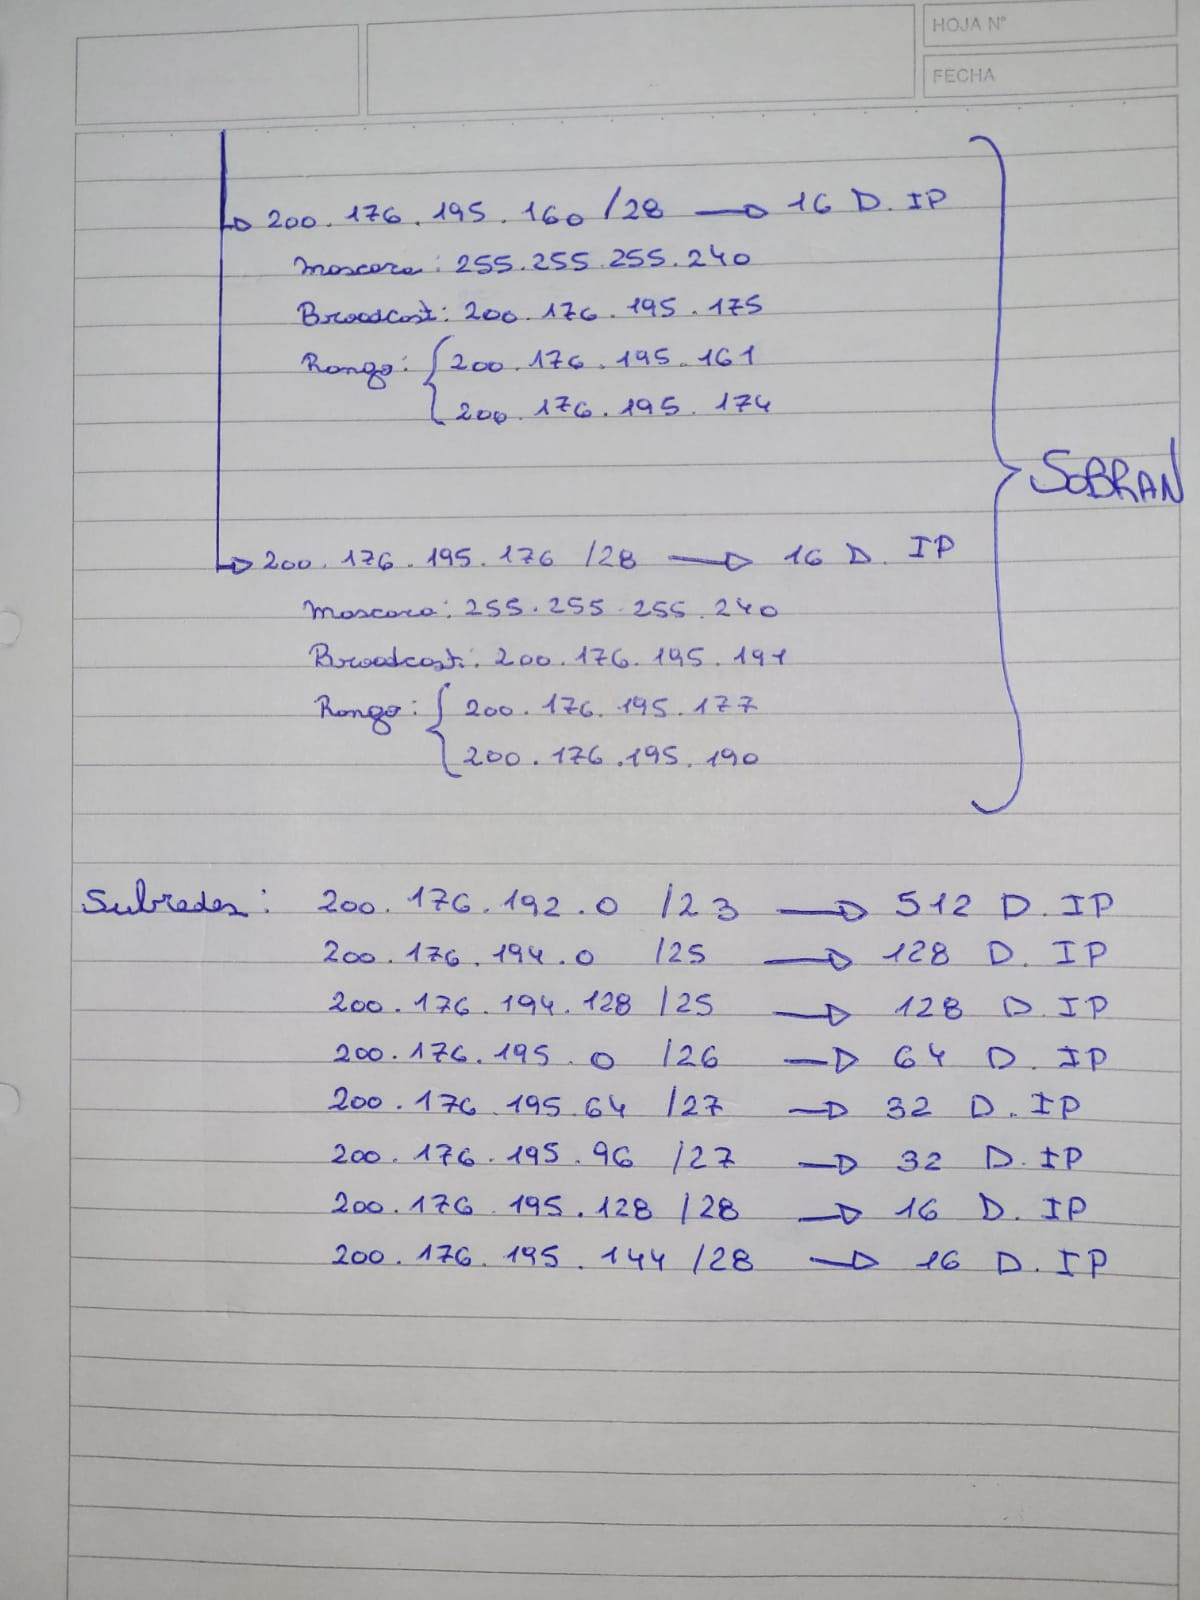 HOJA N°
FECHA
200.176.195.160 /28 → 16 D. IP
Mascara: 255.255.255.240
Broadcast: 200.176.195.175
Rango: { 200.176.195.161
200.176.195.174
SOBRAN
200.176.195.176 /28 → 16 D. IP
Mascara: 255.255.255.240
Broadcast: 200.176.195.191
Rango: { 200.176.195.177
200.176.195.190
Subredes: 200.176.192.0 /23 → 512 D. IP
200.176.194.0 /25 → 128 D. IP
200.176.194.128 /25 → 128 D. IP
200.176.195.0 /26 → 64 D. IP
200.176.195.64 /27 → 32 D. IP
200.176.195.96 /27 → 32 D. IP
200.176.195.128 /28 → 16 D. IP
200.176.195.144 /28 → 16 D. IP